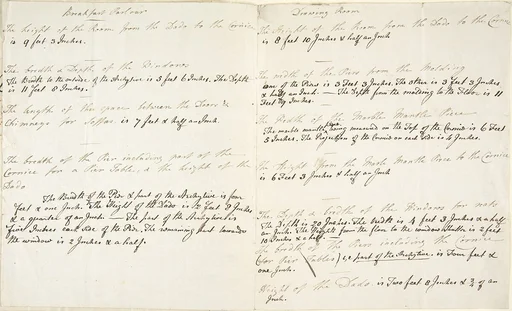 Breakfast Parlour
The height of the Room from the Dado to the Cornice
is 9 feet 3 Inches.
The breadth & Depth of the Windows
The Breadth to the outside of the Architrive is 5 feet 6 Inches. The Depth
is 11 feet 8 Inches.
The length of the space between the Doors &
Chimney for Soffas. is 7 feet & half an Inch.
The breadth of the Pier including part of the
Cornice for a Pier Table, & the height of the
Dado
The Breadth of the Pier & part of the Architrive is four
feet & one Inch. The Height of the Dado is two feet 8 Inches
& a quarter of an Inch — The part of the Architrive is
four Inches each side of the Pier. The remaining part towards
the window is 2 Inches & a half.
Drawing Room
The Height of the Room from the Dado to the Cornice
is 8 feet 10 Inches & half an Inch
The width of the Piers from the Molding
one of the Piers is 3 Feet 3 Inches. The other is 3 Feet 3 Inches
& half an Inch — The Depth from the moulding to the Floor is 11
Feet Inches.
The Breadth of the Marble Mantle Piece
The marble mantle piece being measured on the Top of the Cornice is 6 Feet
5 Inches. The Projection of the Cornice on each side is 4 Inches.
The Height from the Marble Mantle Piece to the Cornice
is 6 Feet 3 Inches & half an Inch
The depth & breadth of the Windows for seats
The Depth is 20 Inches. The breadth is 4 feet 3 Inches & a half
an Inch. The Height from the floor to the window Shutter is 2 feet
10 Inches & a half.
The breadth of the Piers including the Cornice
(for Pier Tables) i,e part of the Architrive, is Four feet &
one Inch.
Height of the Dado is Two feet 8 Inches & 3/4 of an
Inch.